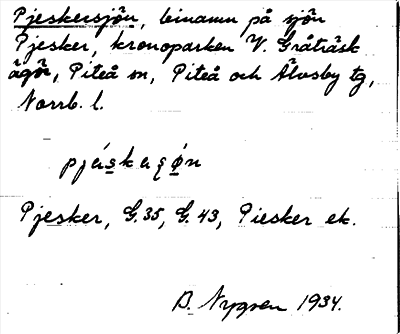 Pjeskersjön, binamn på sjön
Pjesker, kronoparken V. Gråträsk
ägor, Piteå sn, Piteå och Älvsby tg,
Norrb. l.
Pjesker, G.35, G.43, Piesker ek.
B. Nygren 1934.